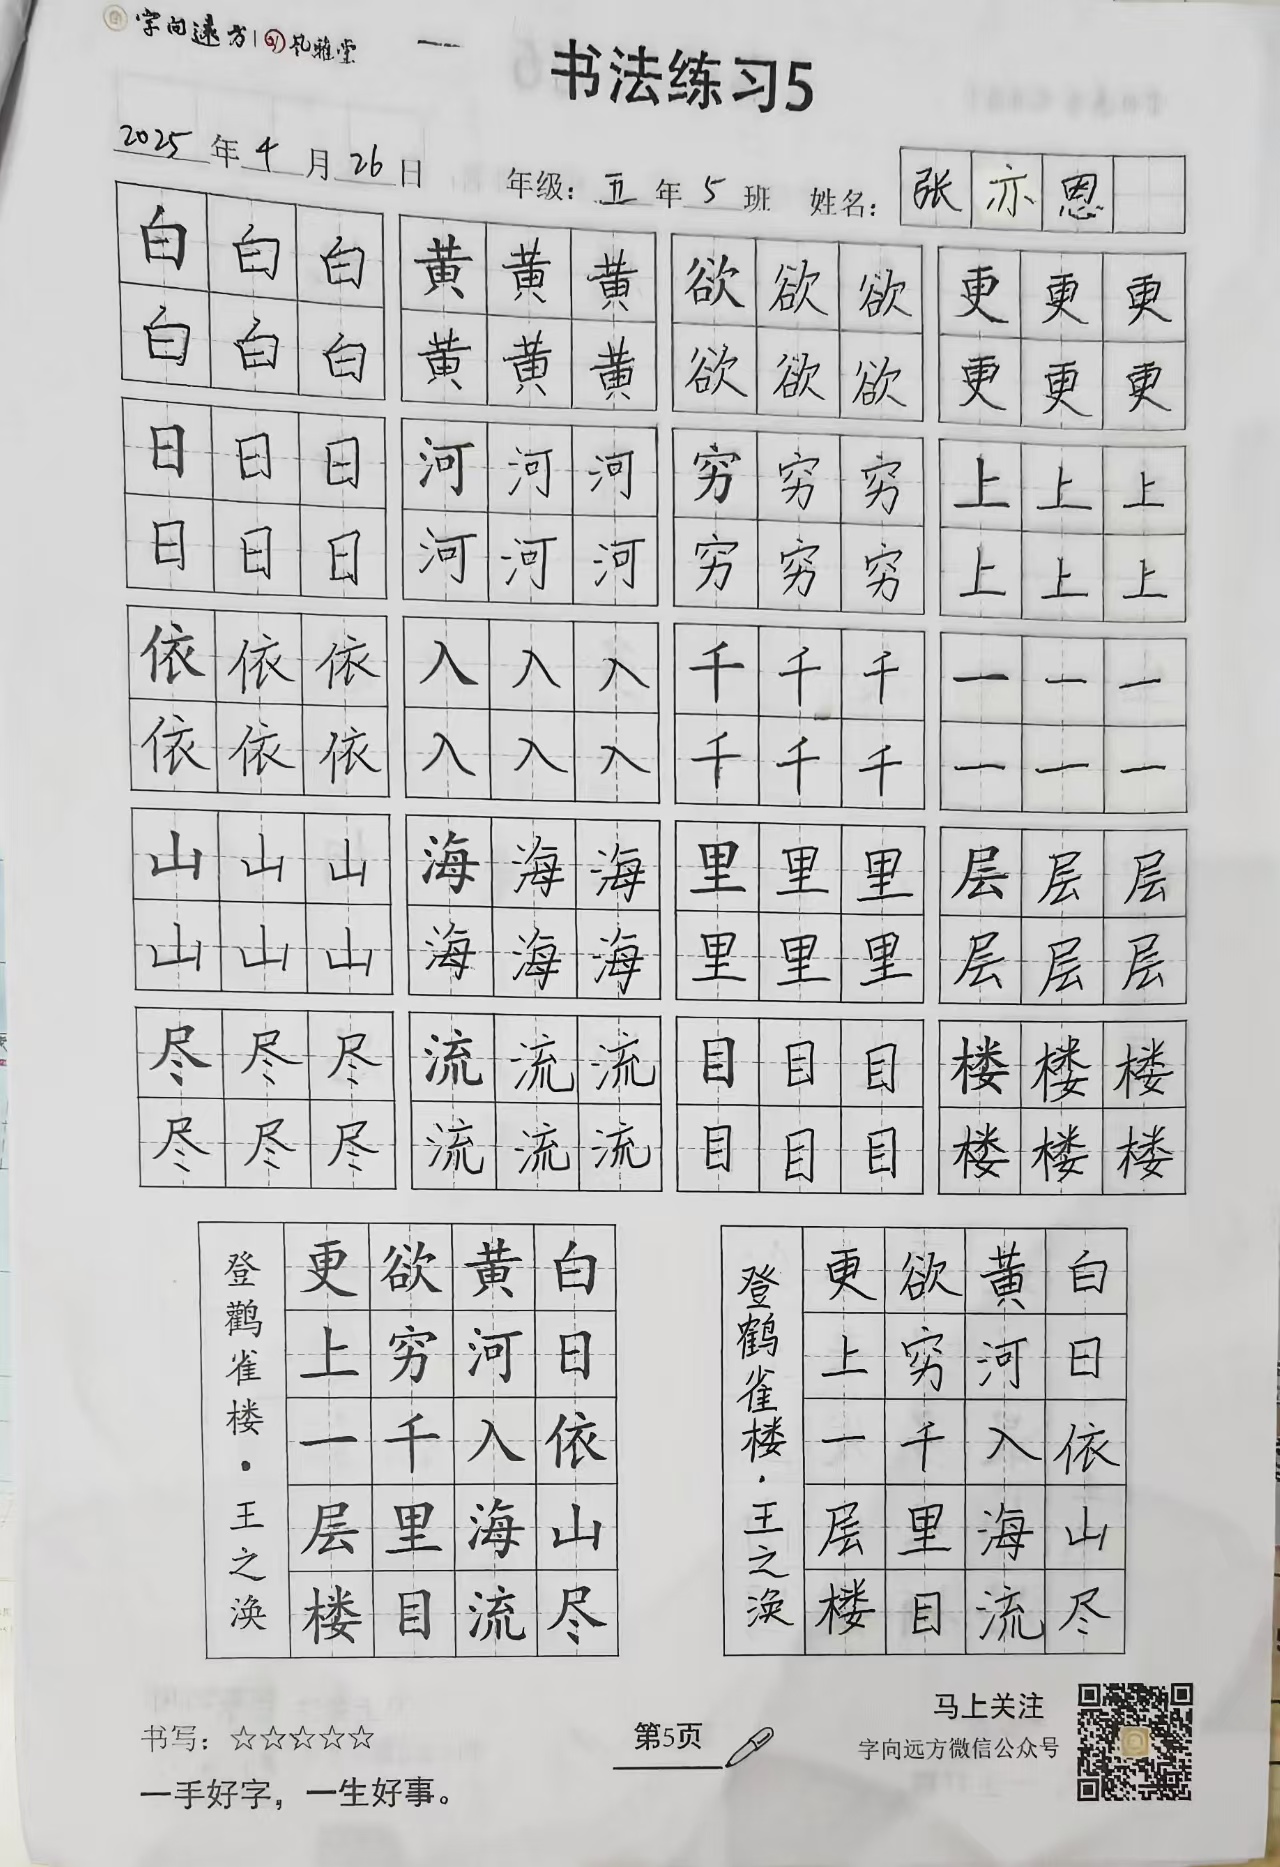 字向远方 | 风雅堂
书法练习5
2025年4月26日 年级：五年5班 姓名：张亦恩
白白白 黄黄黄 欲欲欲 更更更
白白白 黄黄黄 欲欲欲 更更更
日日日 河河河 穷穷穷 上上上
日日日 河河河 穷穷穷 上上上
依依依 入入入 千千千 一一一
依依依 入入入 千千千 一一一
山山山 海海海 里里里 层层层
山山山 海海海 里里里 层层层
尽尽尽 流流流 目目目 楼楼楼
尽尽尽 流流流 目目目 楼楼楼
白日依山尽
黄河入海流
欲穷千里目
更上一层楼
登鹳雀楼·王之涣
白日依山尽
黄河入海流
欲穷千里目
更上一层楼
登鹤雀楼·王之涣
书写：☆☆☆☆☆
一手好字，一生好事。
第5页
马上关注
字向远方微信公众号